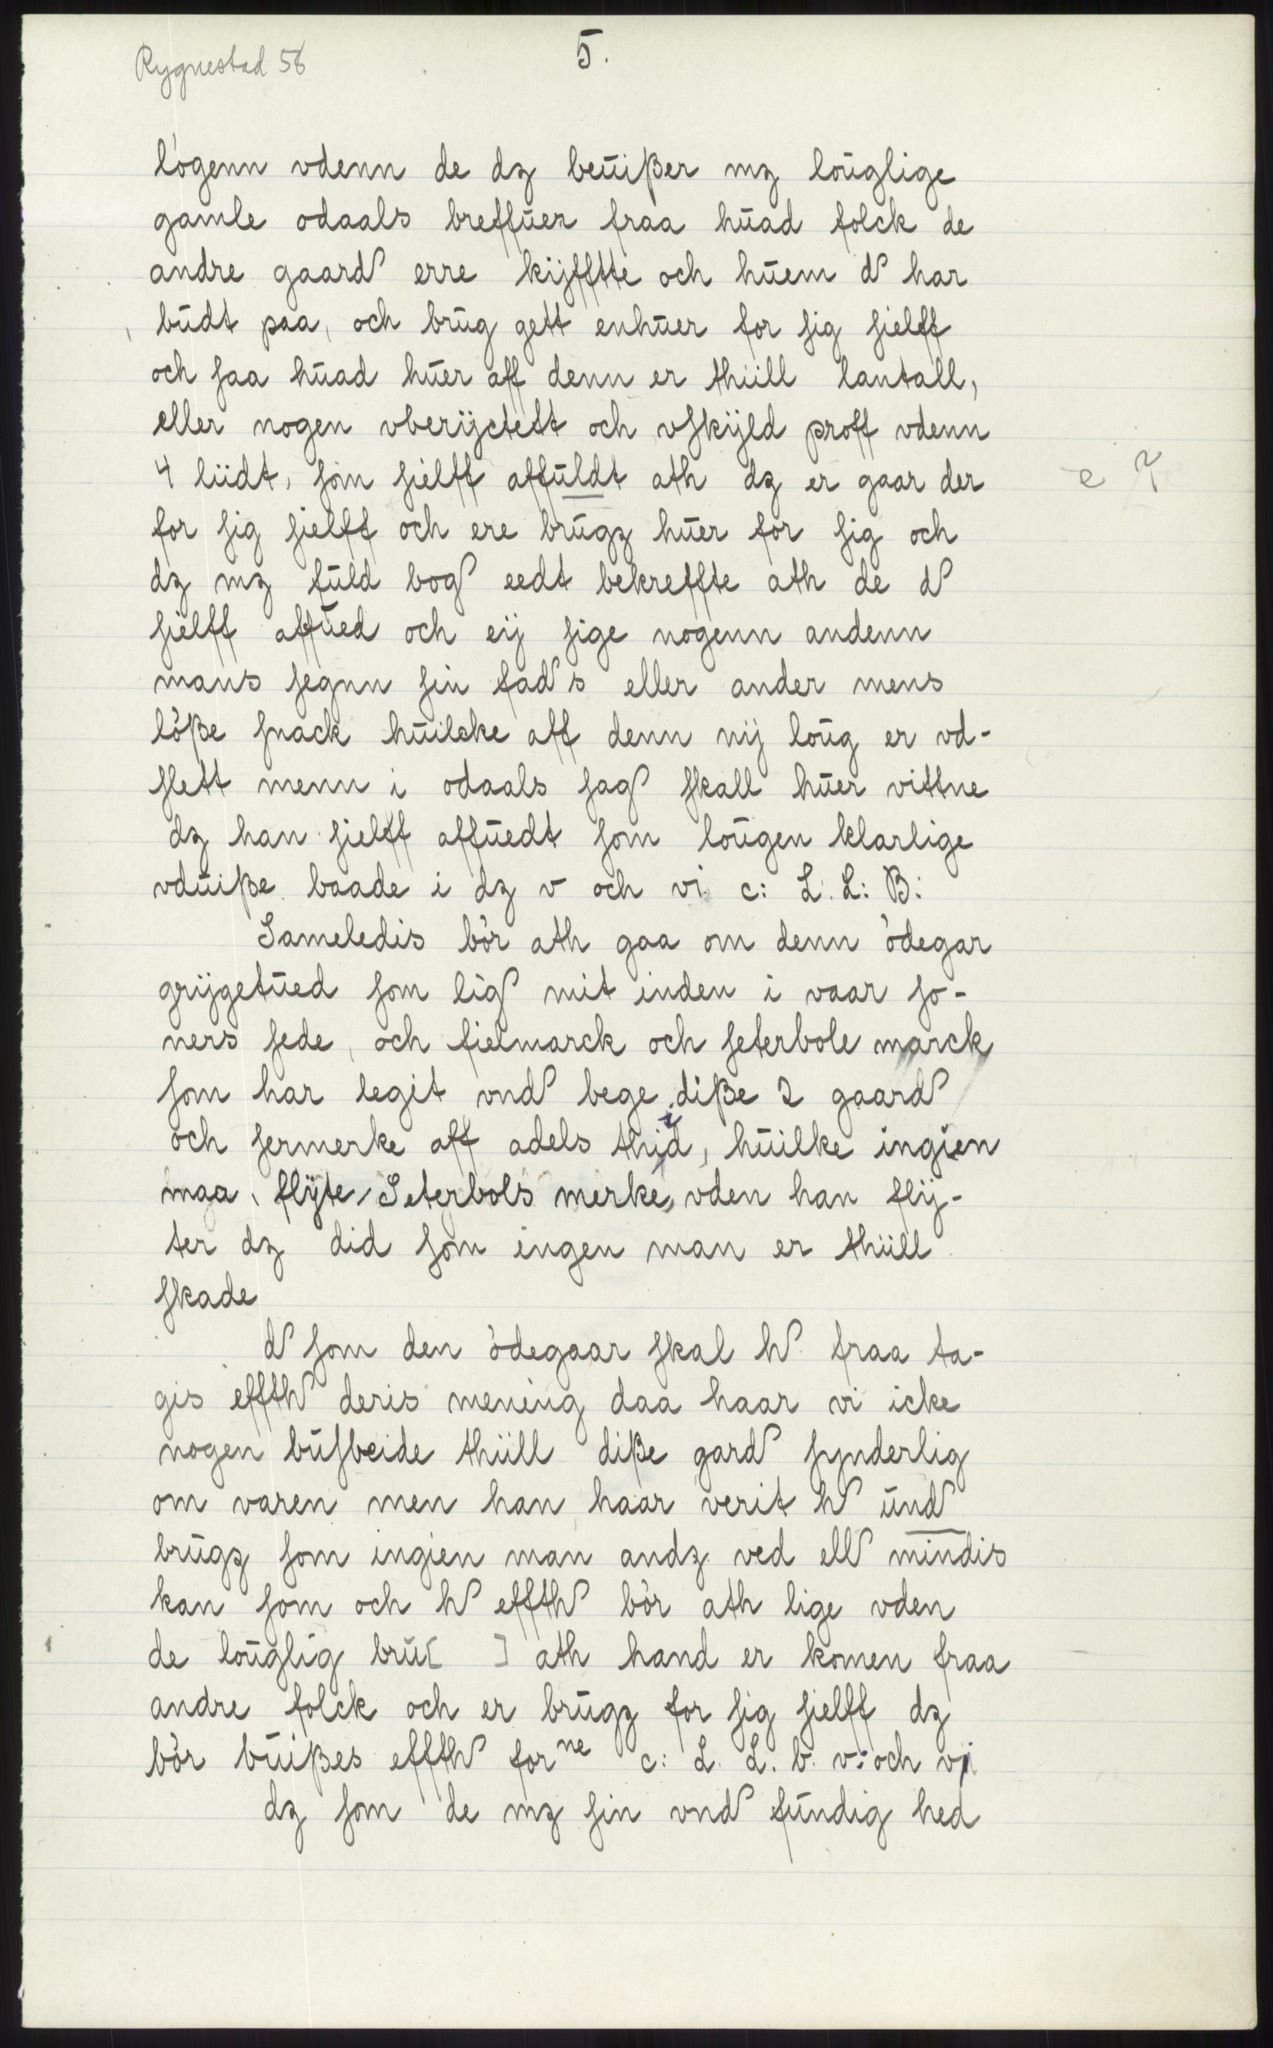 Rygnestad 56
5.
lögenn vdenn de dz beuißer mz louglige
gamle odaals breffuer fraa huad folck de
andre gaard erre kijfftte och huem d har
budt paa, och brug gett enhuer for sig sielff
och saa huad huer aff denn er thiill lantall,
eller nogen vberijctett och vskijld proff vdenn
4 liidt, som sielff affuldt ath dz er gaar der
for sig sielff och ere brugz huer for sig och
dz mz fuld bog eedt bekreffte ath de d
sielff affued och eij sige nogenn andenn
mans segnn sin fad s eller ander mens
löße snack huilcke aff denn nij loug er vd-
slett menn i odaals sag skall huer vittne
dz han sielff affuedt som lougen klarlige
vduiße baade i dz v och vi c: L. L: B:
Sameledis bör ath gaa om denn ödegar
grijgetued som lig mit inden i vaar so-
ners sede, och fielmarck och seterbole marck
som har legit vnd bege diße 2 gaard
och sermerke aff adels thid, huilke ingien
maa flÿte Seterbols merke, vden han flij-
ter dz did som ingen man er thiill
skade
d som den ödegaar skal h fraa ta-
gis effth deris mening daa haar vi icke
nogen busbeide thiill diße gard synderlig
om varen men han haar verit h und
brugz som ingien man andz ved ell mindis
kan som och h effth bör ath lige vden
de louglig bru[ ] ath hand er komen fraa
andre folck och er brugz for sig sielff dz
bör buißes effth for ne c: L. L. b. v: och vi
dz som de mz sin vnd fundig hed